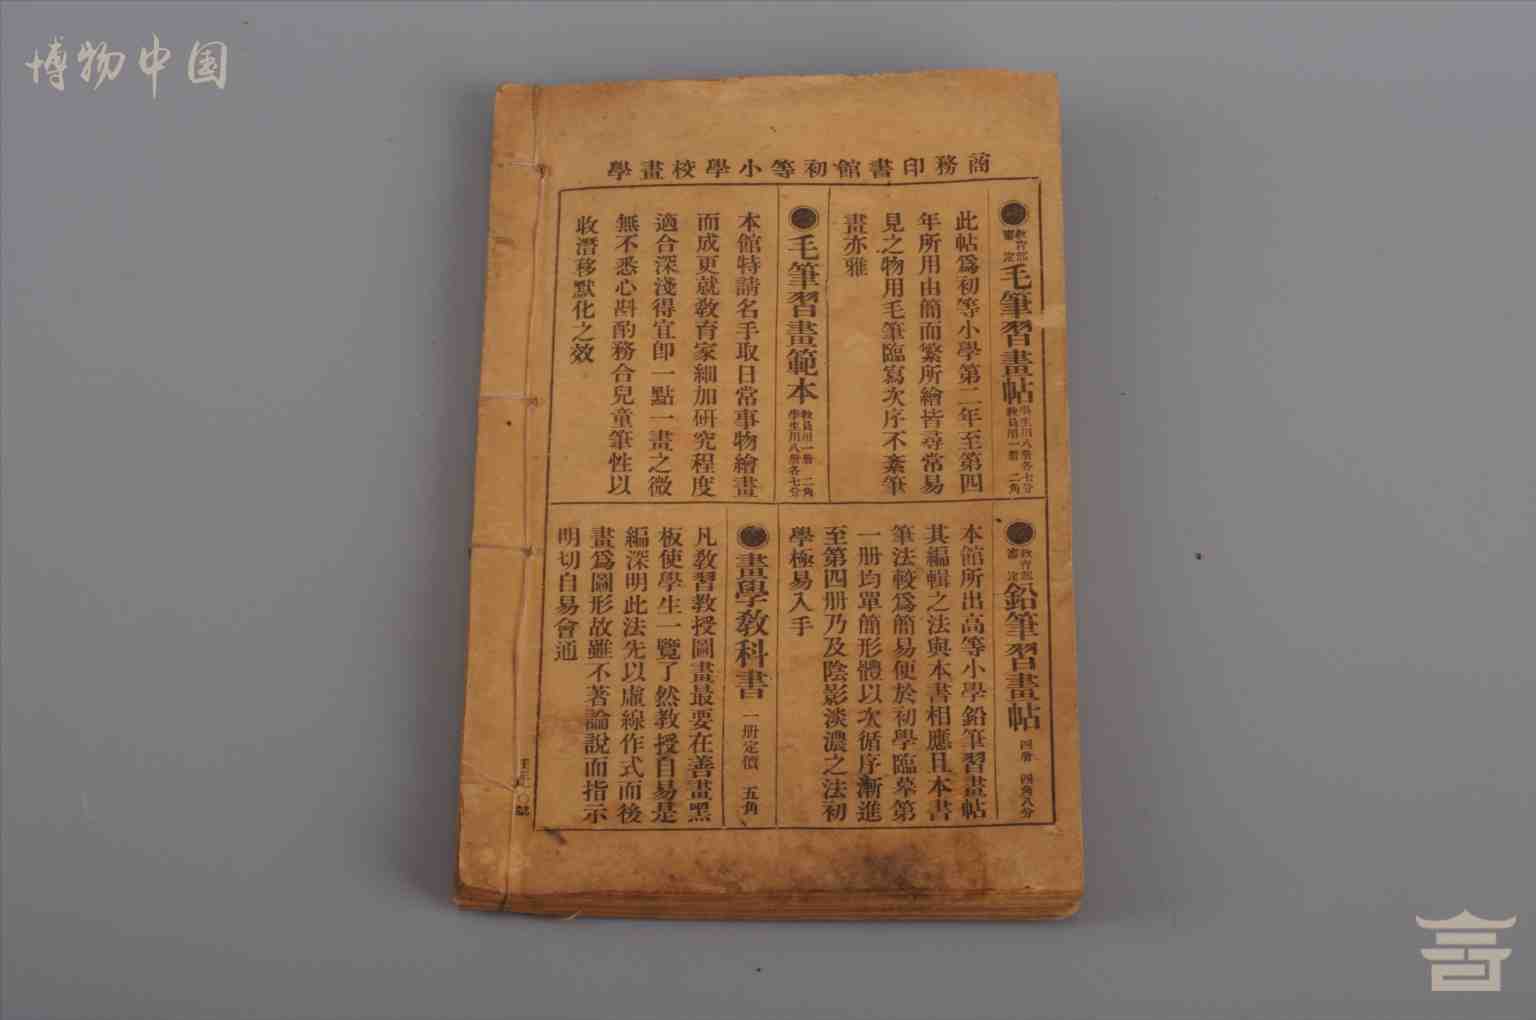 博物中国
商務印書館初等小學校畫學
教育部
審定
毛筆習畫帖
學生用八册各七分
教員用一册 二角
此帖爲初等小學第二年至第四
年所用由簡而繁所繪皆尋常易
見之物用毛筆臨寫次序不紊筆
畫亦雅
毛筆習畫範本
教員用一册 二角
學生用八册各七分
本館特請名手取日常事物繪畫
而成更就教育家細加研究程度
適合深淺得宜卽一點一畫之微
無不悉心斟酌務合兒童筆性以
收潛移默化之效
教育部
審定
鉛筆習畫帖
四册 四角八分
本館所出高等小學鉛筆習畫帖
其編輯之法與本書相應且本書
筆法較爲簡易便於初學臨摹第
一册均單簡形體以次循序漸進
至第四册乃及陰影淡濃之法初
學極易入手
畫學教科書
一册定價 五角
凡教習教授圖畫最要在善畫黑
板使學生一覽了然教授自易是
編深明此法先以虛線作式而後
畫爲圖形故雖不著論說而指示
明切自易會通